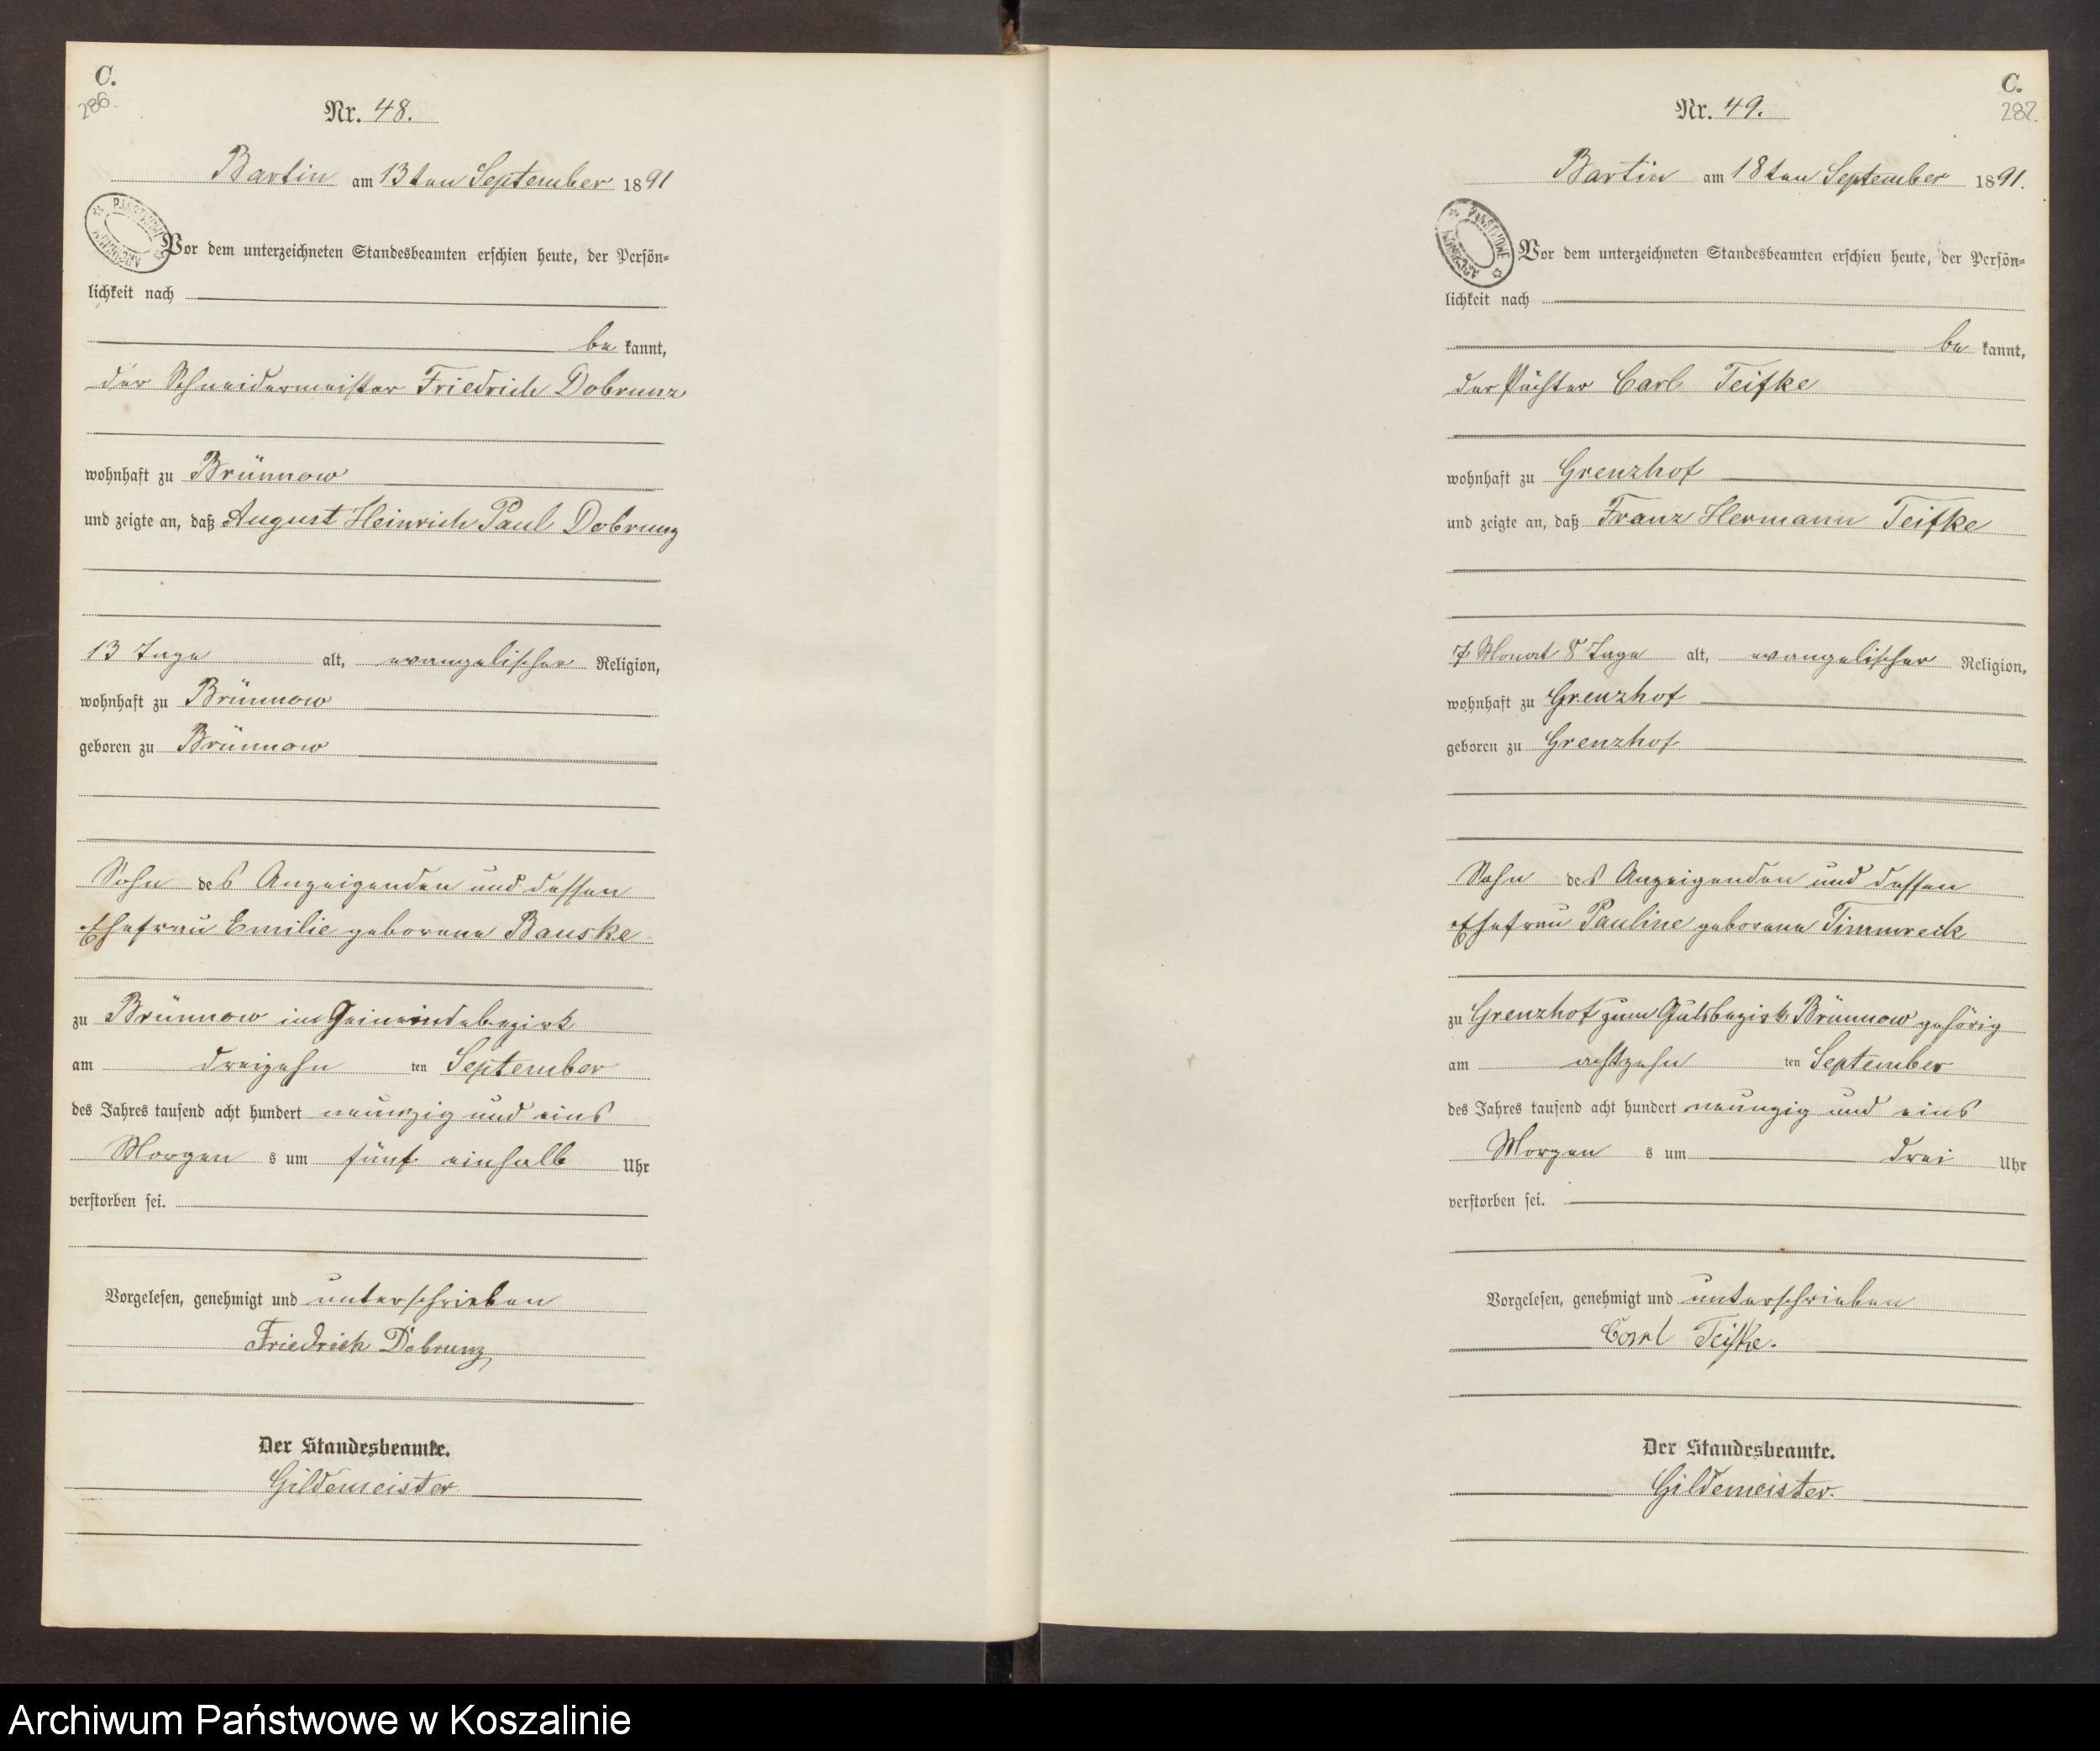 C.
286.
Nr. 48.
Bartin am 13ten September 1891
PAŃSTWOWE ARCHIWUM
Vor dem unterzeichneten Standesbeamten erschien heute, der Persön-
lichkeit nach
be kannt,
der Schneidermeister Friedrich Dobrunz
wohnhaft zu Brünnow
und zeigte an, daß August Heinrich Paul Dobrunz
13 Tage alt, evangelischer Religion,
wohnhaft zu Brünnow
geboren zu Brünnow
Sohn des Anzeigenden und dessen
Ehefrau Emilie geborene Bauske
zu Brünnow im Gemeindebezirk
am dreizehn ten September
des Jahres tausend acht hundert neunzig und eins
Morgen s um fünf einhalb Uhr
verstorben sei.
Vorgelesen, genehmigt und unterschrieben
Friedrich Dobrunz
Der Standesbeamte.
Gildemeister
C.
287.
Nr. 49.
Bartin am 18ten September 1891.
PAŃSTWOWE ARCHIWUM
Vor dem unterzeichneten Standesbeamten erschien heute, der Persön-
lichkeit nach
be kannt,
der Pächter Carl Teifke
wohnhaft zu Grenzhof
und zeigte an, daß Franz Hermann Teifke
7 Monat 8 Tage alt, evangelischer Religion,
wohnhaft zu Grenzhof
geboren zu Grenzhof
Sohn des Anzeigenden und dessen
Ehefrau Pauline geborene Timmreck
zu Grenzhof zum Gutsbezirk Brünnow gehörig
am achtzehn ten September
des Jahres tausend acht hundert neunzig und eins
Morgen s um drei Uhr
verstorben sei.
Vorgelesen, genehmigt und unterschrieben
Carl Teifke.
Der Standesbeamte.
Gildemeister.
Archiwum Państwowe w Koszalinie